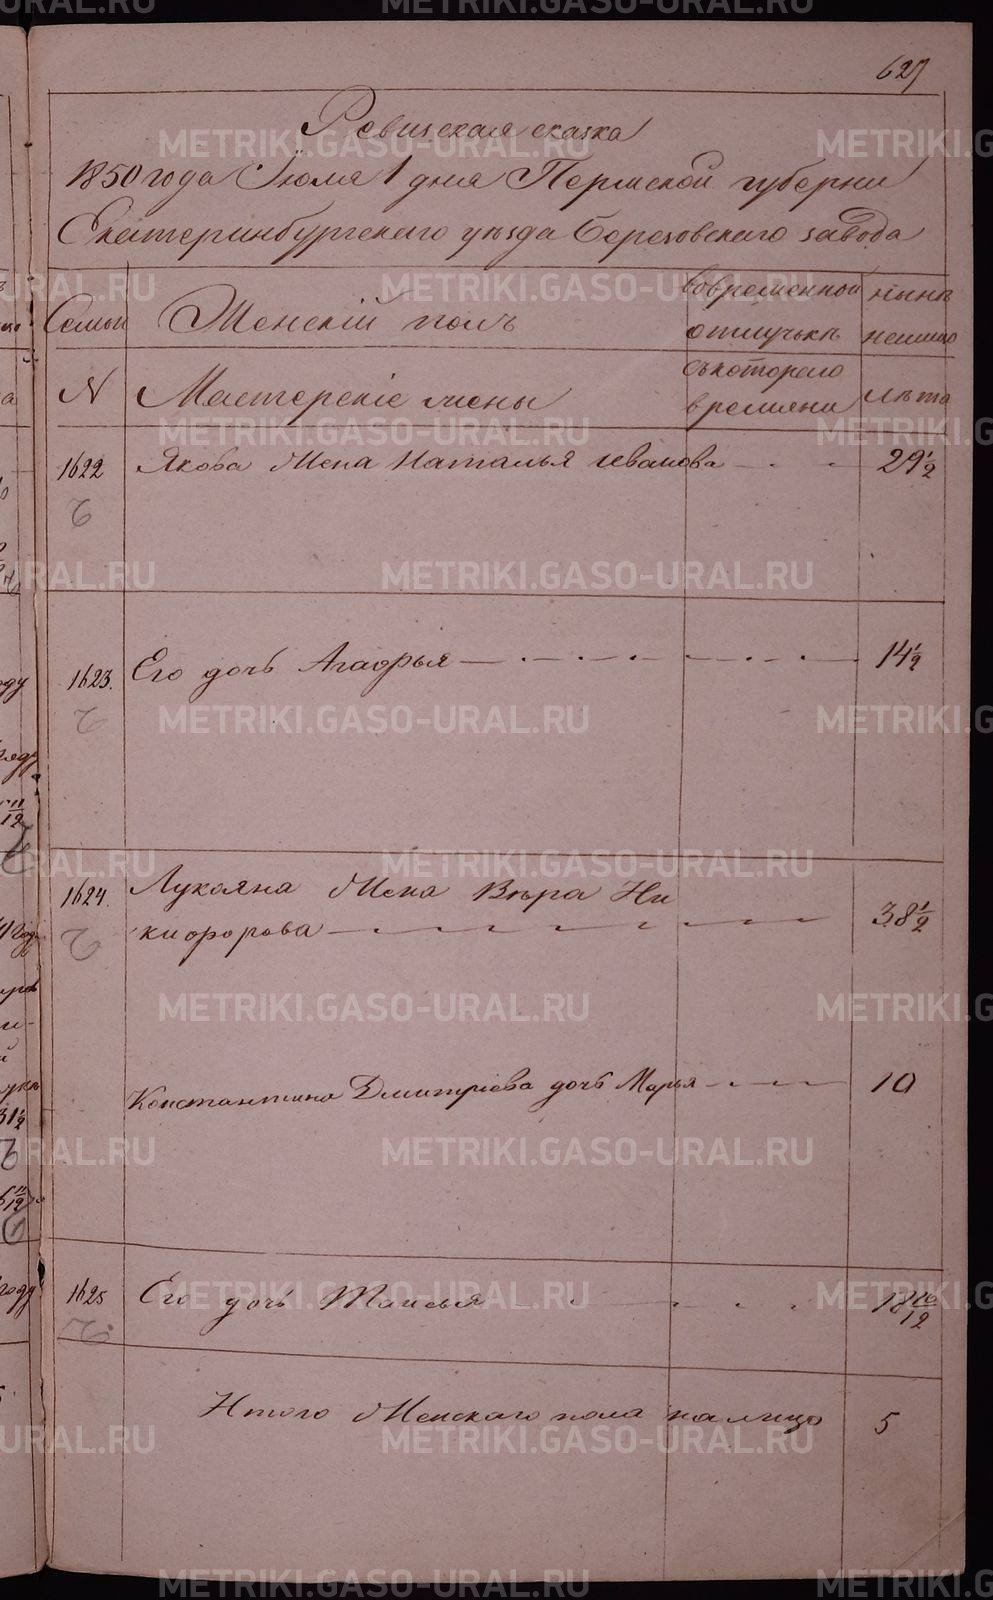 627
Ревизская сказка
1850 года Июля 1 дня Пермской губернии
Екатеринбургского уезда Березовского завода
Семьи
Женскій полъ
вовременной
отлучькѣ
нынѣ
N
Мастерскіе жены
съкотораго
времяни
лѣта
1622
Якова Жена Наталья Иванова
29 1/2
1623.
Его дочь Агафья
14 1/2
1624.
Лукояна Жена Вѣра Ни
кифорова
38 1/2
Константина Дмитріева дочь Марья
10
1625
Его дочь Таисья
18 10/12
Итого Женскаго пола на лицо
5
METRIKI.GASO-URAL.RU